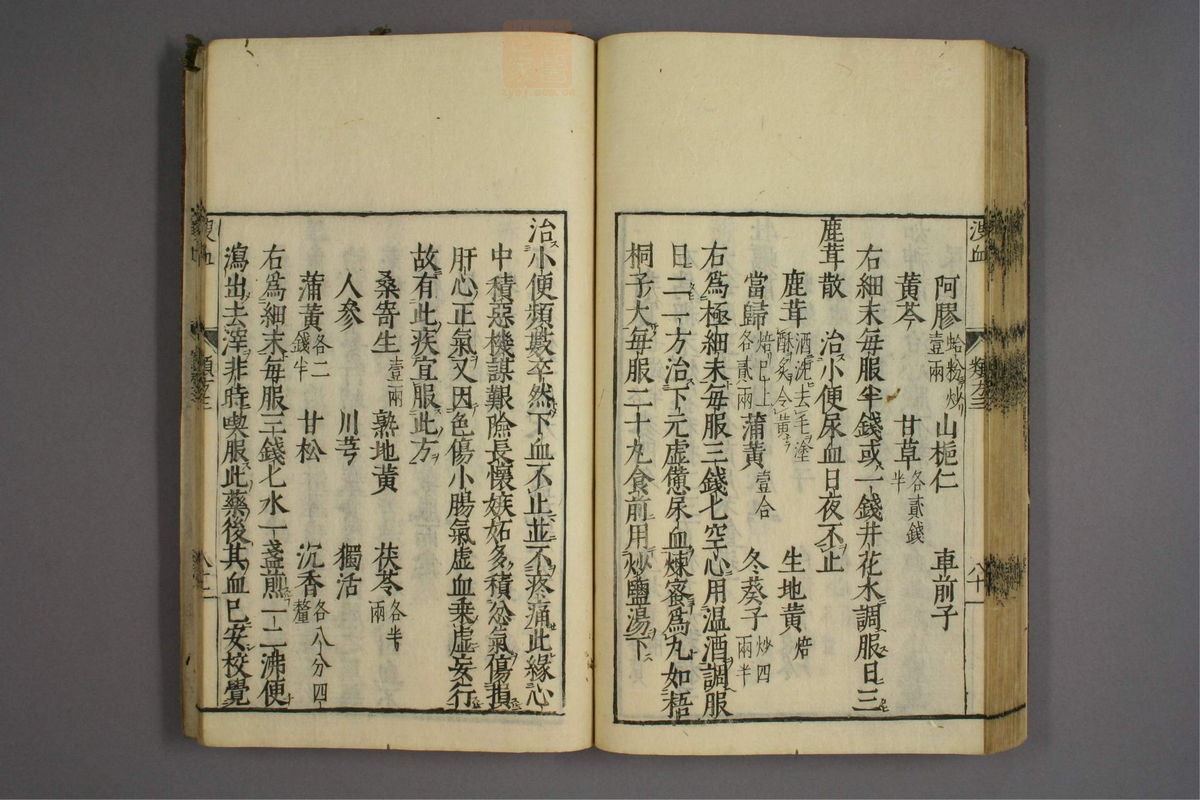 阿膠蛤粉炒壹兩 山梔仁 車前子
黃芩 甘草各貳錢半
右細末每服半錢或一錢井花水調服日三
鹿茸散 治小便尿血日夜不止
鹿茸酒洗去毛塗酥炙令黃 生地黃焙
當歸焙已上各貳兩 蒲黃壹合 冬葵子炒四兩半
右爲極細末每服三錢匕空心用温酒調服
日二一方治下元虛憊尿血煉蜜爲丸如梧
桐子大每服二十丸食前用炒鹽湯下
治小便頻數卒然下血不止並不疼痛此緣心
中積惡機謀艱險長懷嫉妬多積忿氣傷損
肝心正氣又因色傷小腸氣虛血乘虛妄行
故有此疾宜服此方
桑寄生壹兩 熟地黃 茯苓各半兩
人參 川芎 獨活
蒲黃各二錢半 甘松 沉香各八分四釐
右爲細末每服三錢匕水一盞煎一二沸便
瀉出去滓非時喫服此藥後其血已安校覺